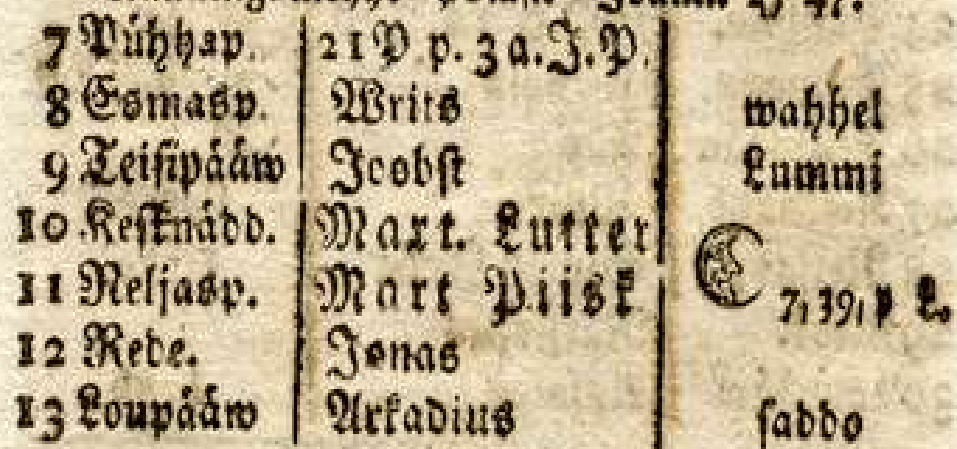 7 Púhhap. 21 P. p. 3 a. J. P.
8 Esmasp. Writs wahhel
9 Teisipääw Jcobst Lummi
10 Kesknädd. Mart. Lutter
11 Neljasp. Mart Piisk 7, 39, p L.
12 Rede. Jonas
13 Loupääw Arkadius saddo